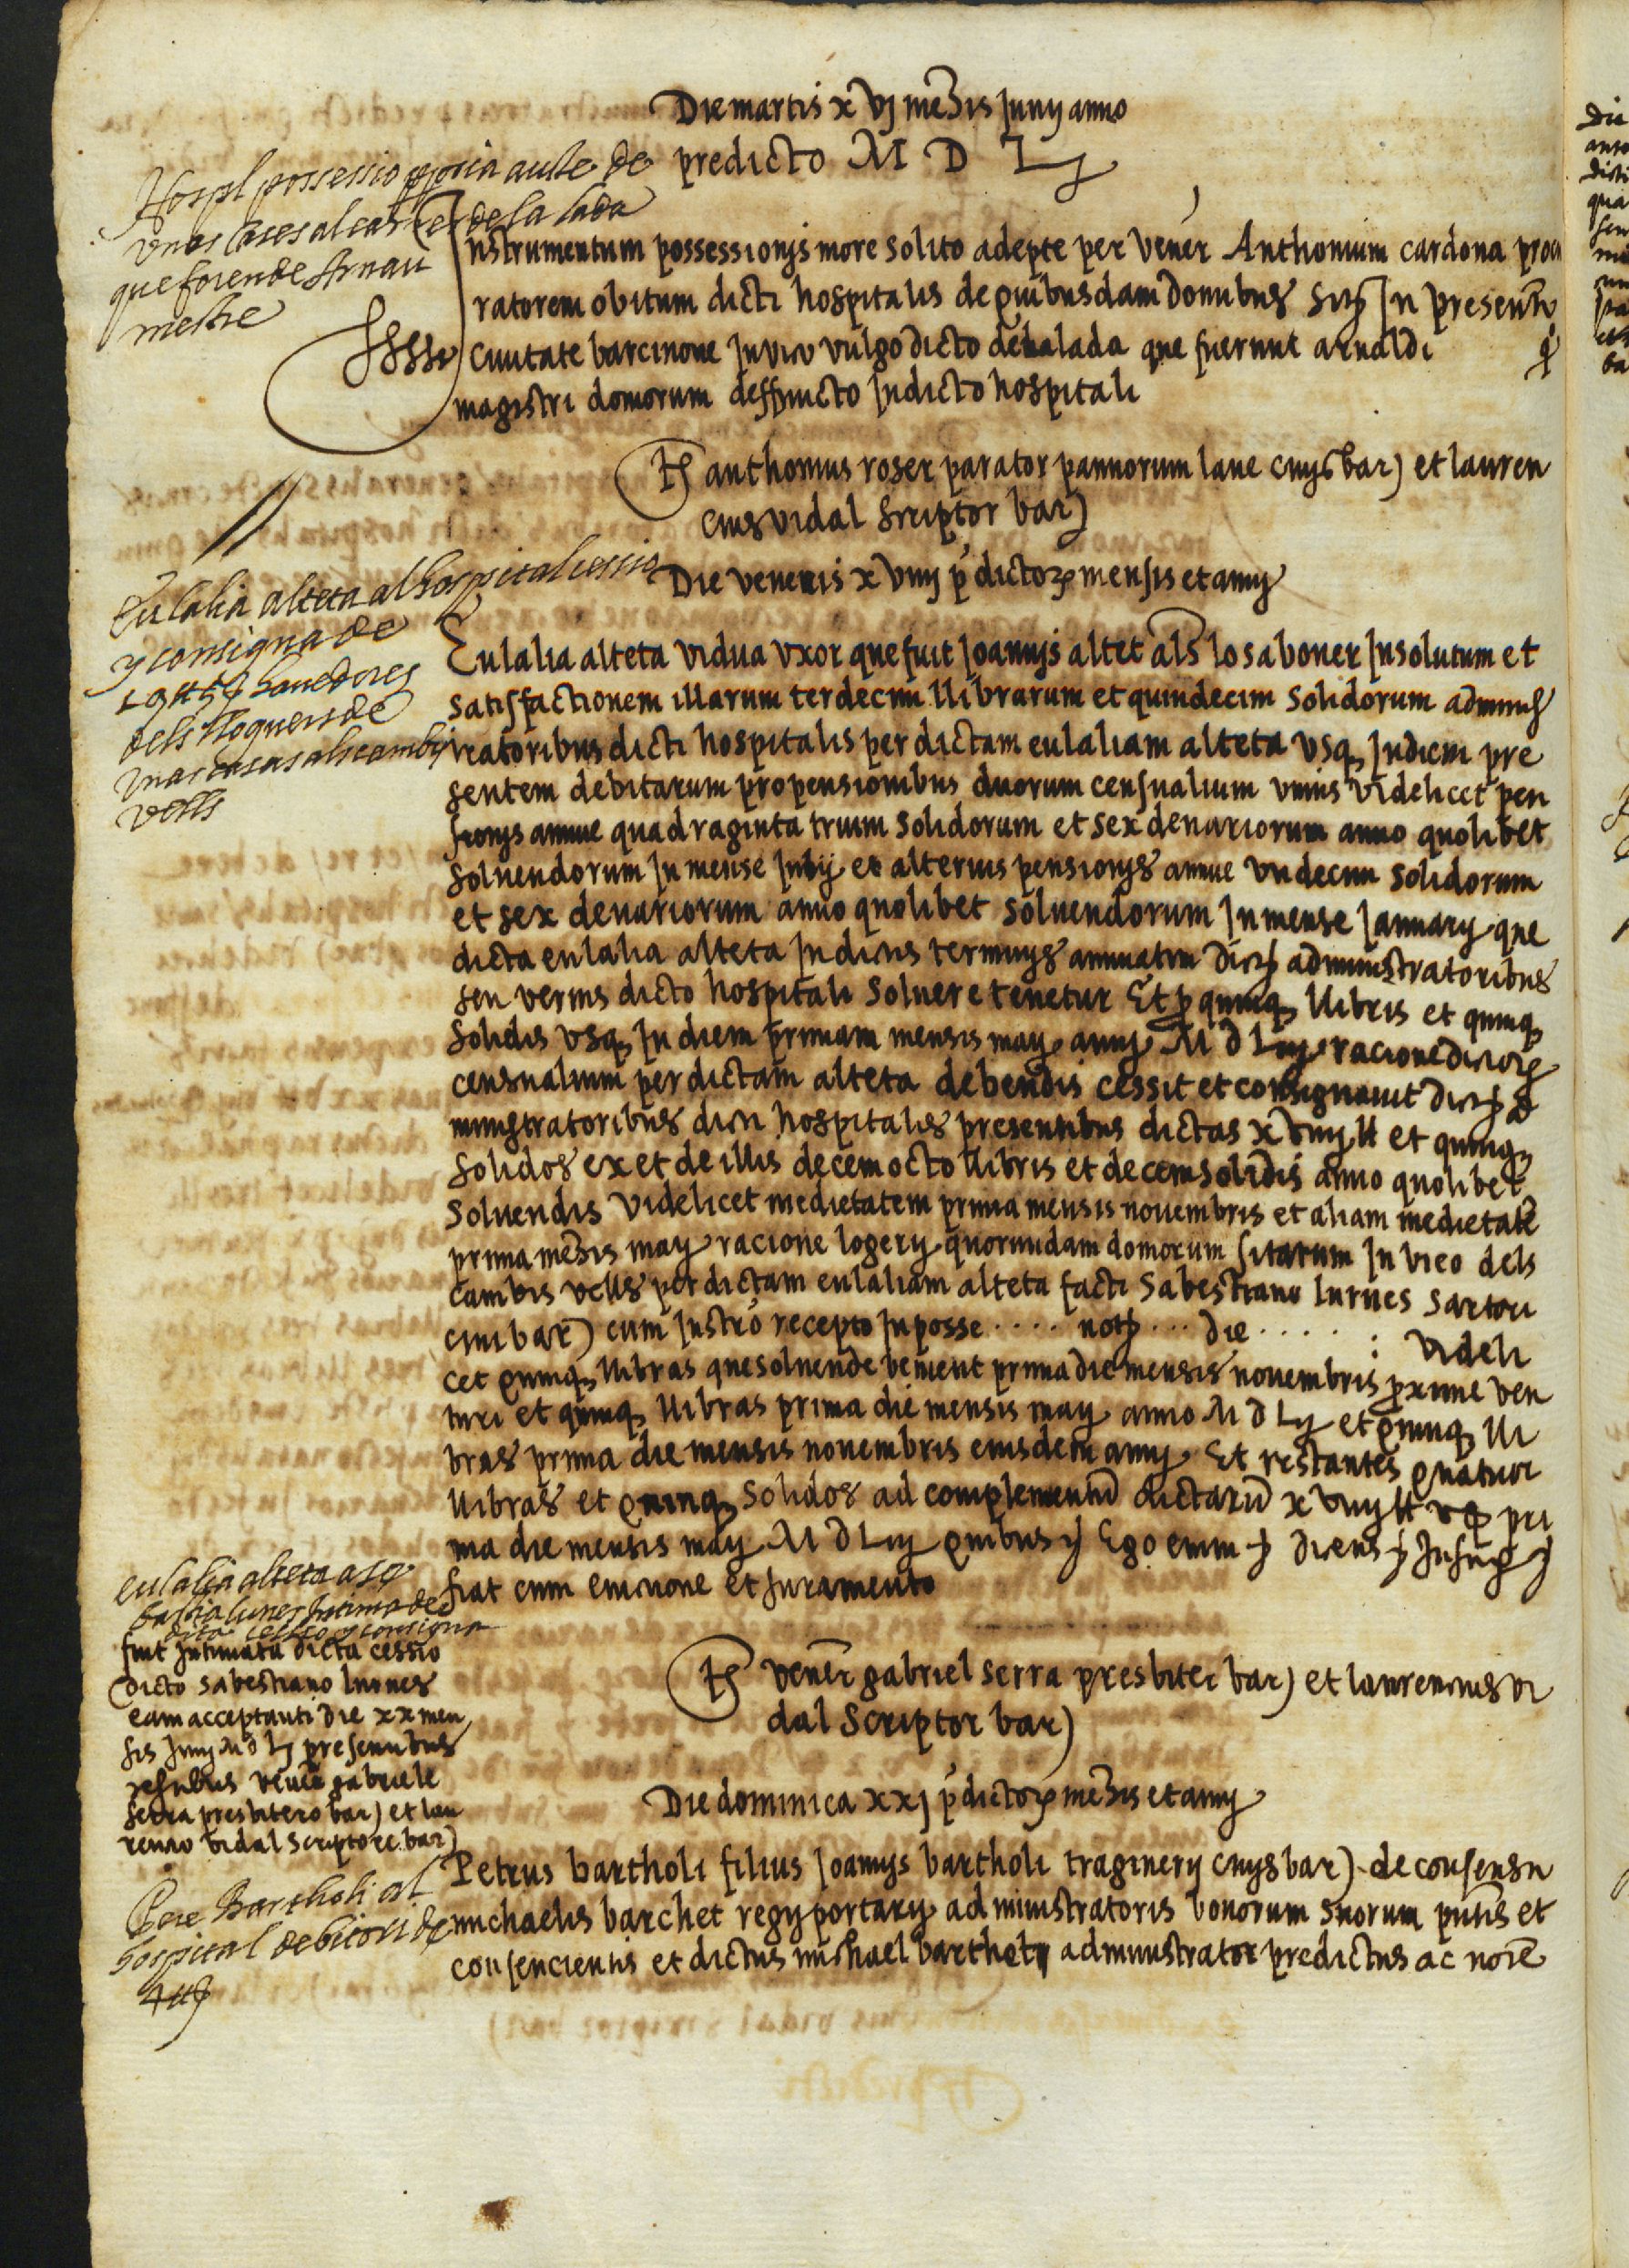 Die martis xvj mensis Junij anno
predicto M D Lj
Hospl possessio ppria aule de
unas cases al carrer de la lada
que foren de Arnau
mestre
Instrumentum possessionis more solito adepte per vener Anthonium cardona procu
ratorem obituum dicti hospitalis de quibusdam domibus sitis In presenti
Civitate barcinone In vico vulgo dicto de la lada que fuerunt arnaldi
magistri domorum deffuncto In dicto hospitali
Ts anthonius roser parator pannorum lane civis bar) et lauren
cius vidal Scriptor bar)
Die veneris xviiij pdictorum mensis et anny
Eulalia alteta al hospital cessio
y consigna de
dels lloguers de
unas casas als cambis
vells
Eulalia alteta vidua uxor que fuit Joannis altet als lo saboner In solutum et
satisfactionem illarum terdecim llibrarum et quindecim solidorum adminis
tratoribus dicti hospitalis per dictam eulaliam alteta usq In diem pre
sentem debitarum pro pensionibus duorum censualium unius videlicet pen
sionis annue quadraginta trium solidorum et sex denariorum anno quolibet
solvendorum In mense Julij et alterius pensionis annue undecim solidorum
et sex denariorum anno quolibet solvendorum In mense Januarij que
dicta eulalia alteta In dictis terminis annuatim dictis administratoribus
seu verius dicto hospitali solvere tenetur Et p quinq llibris et quinq
solidis usq In diem primam mensis maij anny M D Lij racione dictorum
censualium per dictam alteta debendis cessit et consignavit dictis ad
ministratoribus dicti hospitalis presentibus dictas xviiij ll et quinq
solidos ex et de illis decem octo llibris et decem solidis anno quolibet
solvendis videlicet medietatem prima mensis novembris et aliam medietate
prima mensis maij racione logerij quorumdam domorum sitarum In vico dels
cambis vells per dictam eulaliam alteta facti Sabestiano lunes sartori
civi bar) cum Instro recepto In posse .... not ... die ..... : videli
cet quinq llibras que solvende venient prima die mensis novembris pxime ven
turi et quinq llibras prima die mensis maij anno M D Lij et quinq lli
bras prima die mensis novembris eiusdem anny Et restantes quatuor
llibras et quinq solidos ad complementum dictarum xviiij ll v s pri
ma die mensis maij M D Liij quibus Ego enim dicens Insup
fiat cum evictione et Juramento
eulalia alteta a se
bastia lunes Intima de
dita cessio y consigna
fuit Intimata dicta cessio
dicto sabestiano lunes
eam acceptanti die xx men
sis Junij M D Lj presentibus
testibus vener gabriele
serra presbitero bar) et lau
rencio vidal scriptore bar)
Ts vener gabriel serra presbiter bar) et laurencius vi
dal Scriptor bar)
Die dominica xxj pdictorum mensis et anny
Pere Bartholi al
hospital debitori de
Petrus bartholi filius Joannis bartholi traginerij civis bar) de consensu
michaelis barchet regij portarij administratoris bonorum suorum pntis et
consencientis et dictus michael administrator predictus ac noie